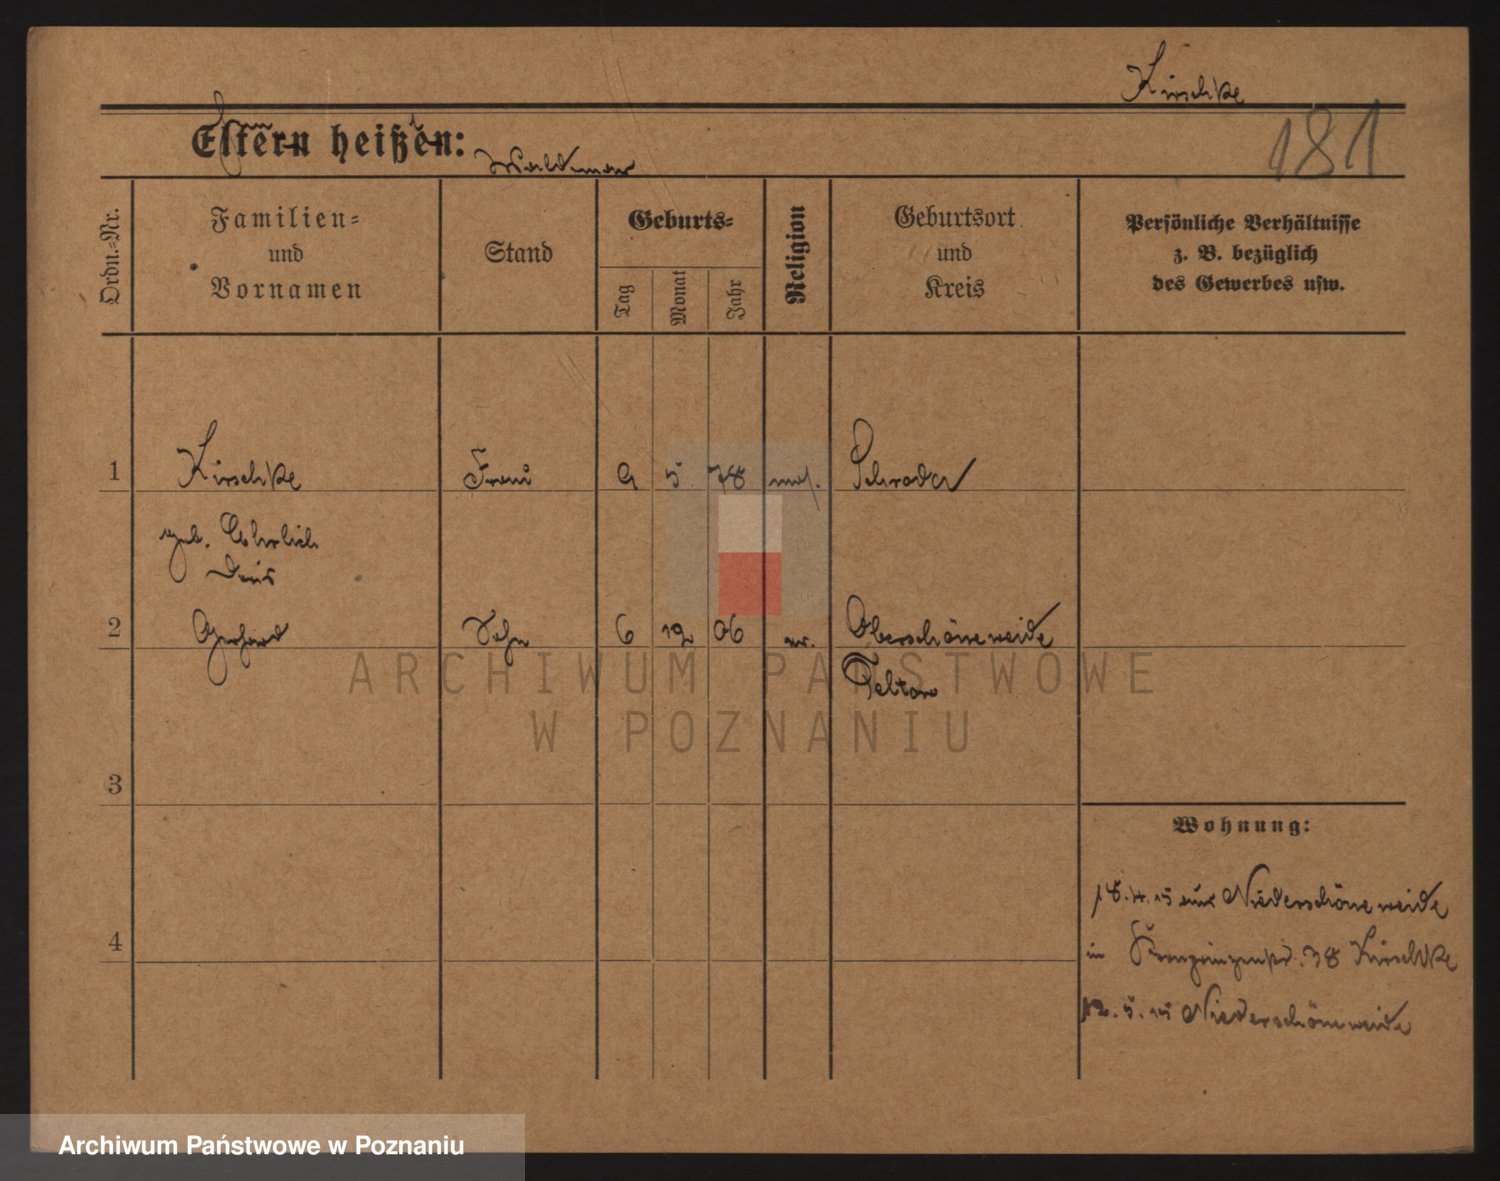 Kirschke
181
Eltern heißen:
Waldemar
Ordn.=Nr.
Familien=
und
Vornamen
Stand
Geburts=
Tag
Monat
Jahr
Religion
Geburtsort
und
Kreis
Persönliche Verhältnisse
z. B. bezüglich
des Gewerbes usw.
1 Kirschke Frau 9 5 78 Schroda
geb. Ehrlich
2 Gerhard Sohn 6 12 06 Oberschöneweide
Teltow
3
4
Wohnung:
18.4.15 aus Niederschöneweide
in Kronprinzenstr. 38 Kirschke
12.5.15 Niederschöneweide
ARCHIWUM PAŃSTWOWE
W POZNANIU
Archiwum Państwowe w Poznaniu